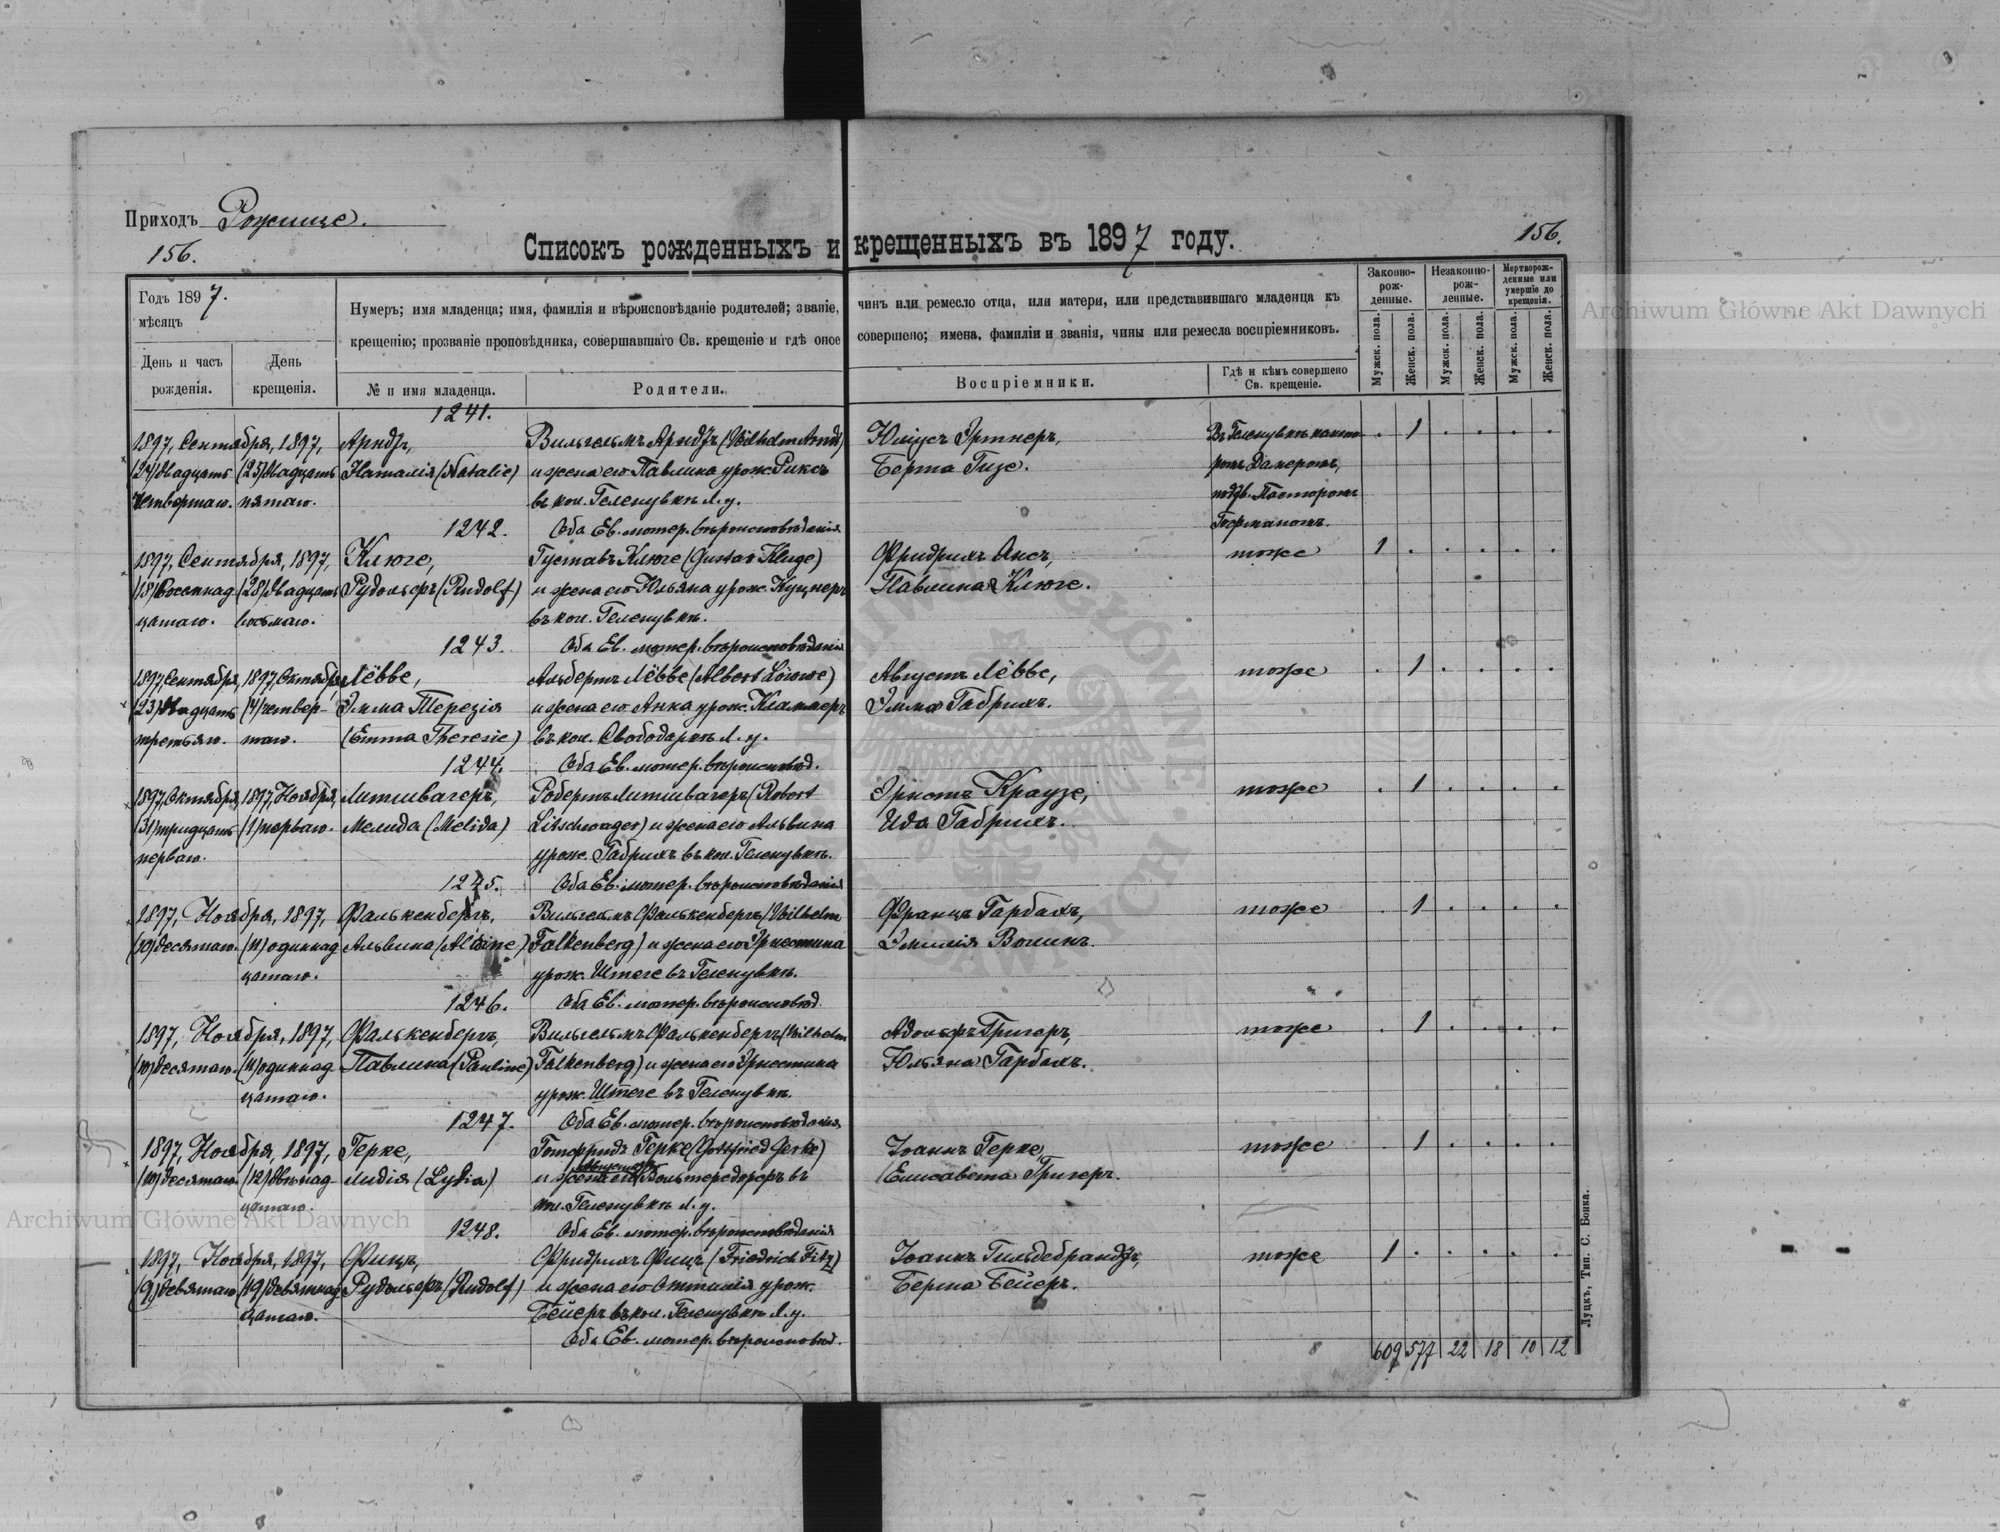 Приходъ Рожище.
156.
156.
Списокъ рожденныхъ и крещенныхъ въ 1897 году.
Годъ 1897.
мѣсяцъ
День и часъ рожденія.
День крещенія.
Нумеръ; имя младенца; имя, фамилія и вѣроисповѣданіе родителей; званіе, чинъ или ремесло отца, или матери, или представившаго младенца къ
крещенію; прозваніе проповѣдника, совершавшаго Св. крещеніе и гдѣ оное совершено; имена, фамиліи и званія, чины или ремесла воспріемниковъ.
№ и имя младенца.
Родители.
Воспріемники.
Гдѣ и кѣмъ совершено Св. крещеніе.
Законно-рож-денные.
Незаконно-рож-денные.
Мертворож-денные или умершіе до крещенія.
Мужск. пола. Женск. пола. Мужск. пола. Женск. пола. Мужск. пола. Женск. пола.
1241.
1897, Сентября, 1897, Арндъ, Вильгельмъ Арндъ (Wilhelm Arndt) Юліусъ Эртнеръ, Въ Геленувкѣ канто- . 1 . . . .
(24) двадцать (25) двадцать Наталія (Natalie) и жена его Павлина урож. Риксъ Берта Гизе. ромъ Дамеромъ,
четвертаго. пятаго. въ кол. Геленувкѣ Л. у. подтв. Пасторомъ
1242. Оба Ев. лютер. вѣроисповѣданія Гофманомъ.
1897, Сентября, 1897, Клюге, Густавъ Клюге (Gustav Kluge) Фридрихъ Аксъ, тоже 1 . . . . .
(18) Восемнад- (28) двадцать Рудольфъ (Rudolf) и жена его Юльяна урож. Куцнеръ Павлина Клюге.
цатаго. восьмаго. въ кол. Геленувкѣ.
1243. Оба Ев. лютер. вѣроисповѣданія
1897, Сентября, 1897, Октября Лёвве, Альбертъ Лёвве (Albert Löwe) Августъ Лёвве, тоже . 1 . . . .
(23) двадцать (4) четвер- Эмма Терезія и жена его Анна урож. Кламмеръ Эмма Габрихъ.
третьяго. таго. (Emma Theresie) въ кол. Свободаркѣ Л. у.
1244. Оба Ев. лютер. вѣроисповѣд.
1897, Октября, 1897, Ноября, Литшвагеръ, Робертъ Литшвагеръ (Robert Эрнстъ Краузе, тоже . 1 . . . .
(31) тридцать (1) перваго. Мелида (Melida) Litschwager) и жена его Альвина Ида Габрихъ.
перваго. урож. Габрихъ въ кол. Геленувкѣ.
1245. Оба Ев. лютер. вѣроисповѣданія
1897, Ноября, 1897, Фалькенбергъ, Вильгельмъ Фалькенбергъ (Wilhelm Францъ Гарбахъ, тоже . 1 . . . .
(10) десятаго. (11) одиннад- Альвина (Alwine) Falkenberg) и жена его Эрнестина Эмилія Волинъ.
цатаго. урож. Штеге въ Геленувкѣ.
1246. Оба Ев. лютер. вѣроисповѣд.
1897, Ноября, 1897, Фалькенбергъ, Вильгельмъ Фалькенбергъ (Wilhelm Адольфъ Григеръ, тоже . 1 . . . .
(10) десятаго. (11) одиннад- Павлина (Pauline) Falkenberg) и жена его Эрнестина Юльяна Гарбахъ.
цатаго. урож. Штеге въ Геленувкѣ.
1247. Оба Ев. лютер. вѣроисповѣданія
1897, Ноября, 1897, Герке, Готфридъ Герке (Gottfried Gerke) Іоаннъ Герке, тоже . 1 . . . .
(10) десятаго. (12) двѣнад- Лидія (Lydia) и жена его Вольтередорфъ въ Елисавета Григеръ.
цатаго. кол. Геленувкѣ Л. у.
1248. Оба Ев. лютер. вѣроисповѣданія
1897, Ноября, 1897, Фицъ, Фридрихъ Фицъ (Friedrich Fitz) Іоаннъ Гильдебрандъ, тоже 1 . . . . .
(9) девятаго (19) девятнад- Рудольфъ (Rudolf) и жена его Оттилія урож. Берта Бейеръ.
цатаго. Бейеръ въ кол. Геленувкѣ Л. у.
Оба Ев. лютер. вѣроисповѣд.
609 577 22 18 10 12
Луцкъ, Тип. С. Бонка.
Archiwum Główne Akt Dawnych
Archiwum Główne Akt Dawnych